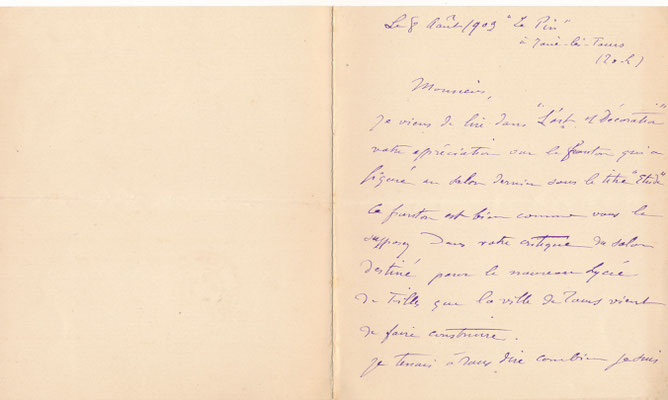 Le 8 Août 1903 "Le Pin"
à Joué-lès-Tours
(I. & L.)
Monsieur,
je viens de lire dans "L'art et décoration"
votre appréciation sur le fronton qui a
figuré au salon dernier sous le titre "Etude"
Ce fronton est bien comme vous le
supposez dans votre critique du salon
destiné pour le nouveau Lycée
de Filles que la ville de Tours vient
de faire construire.
je tenais à vous dire combien je suis